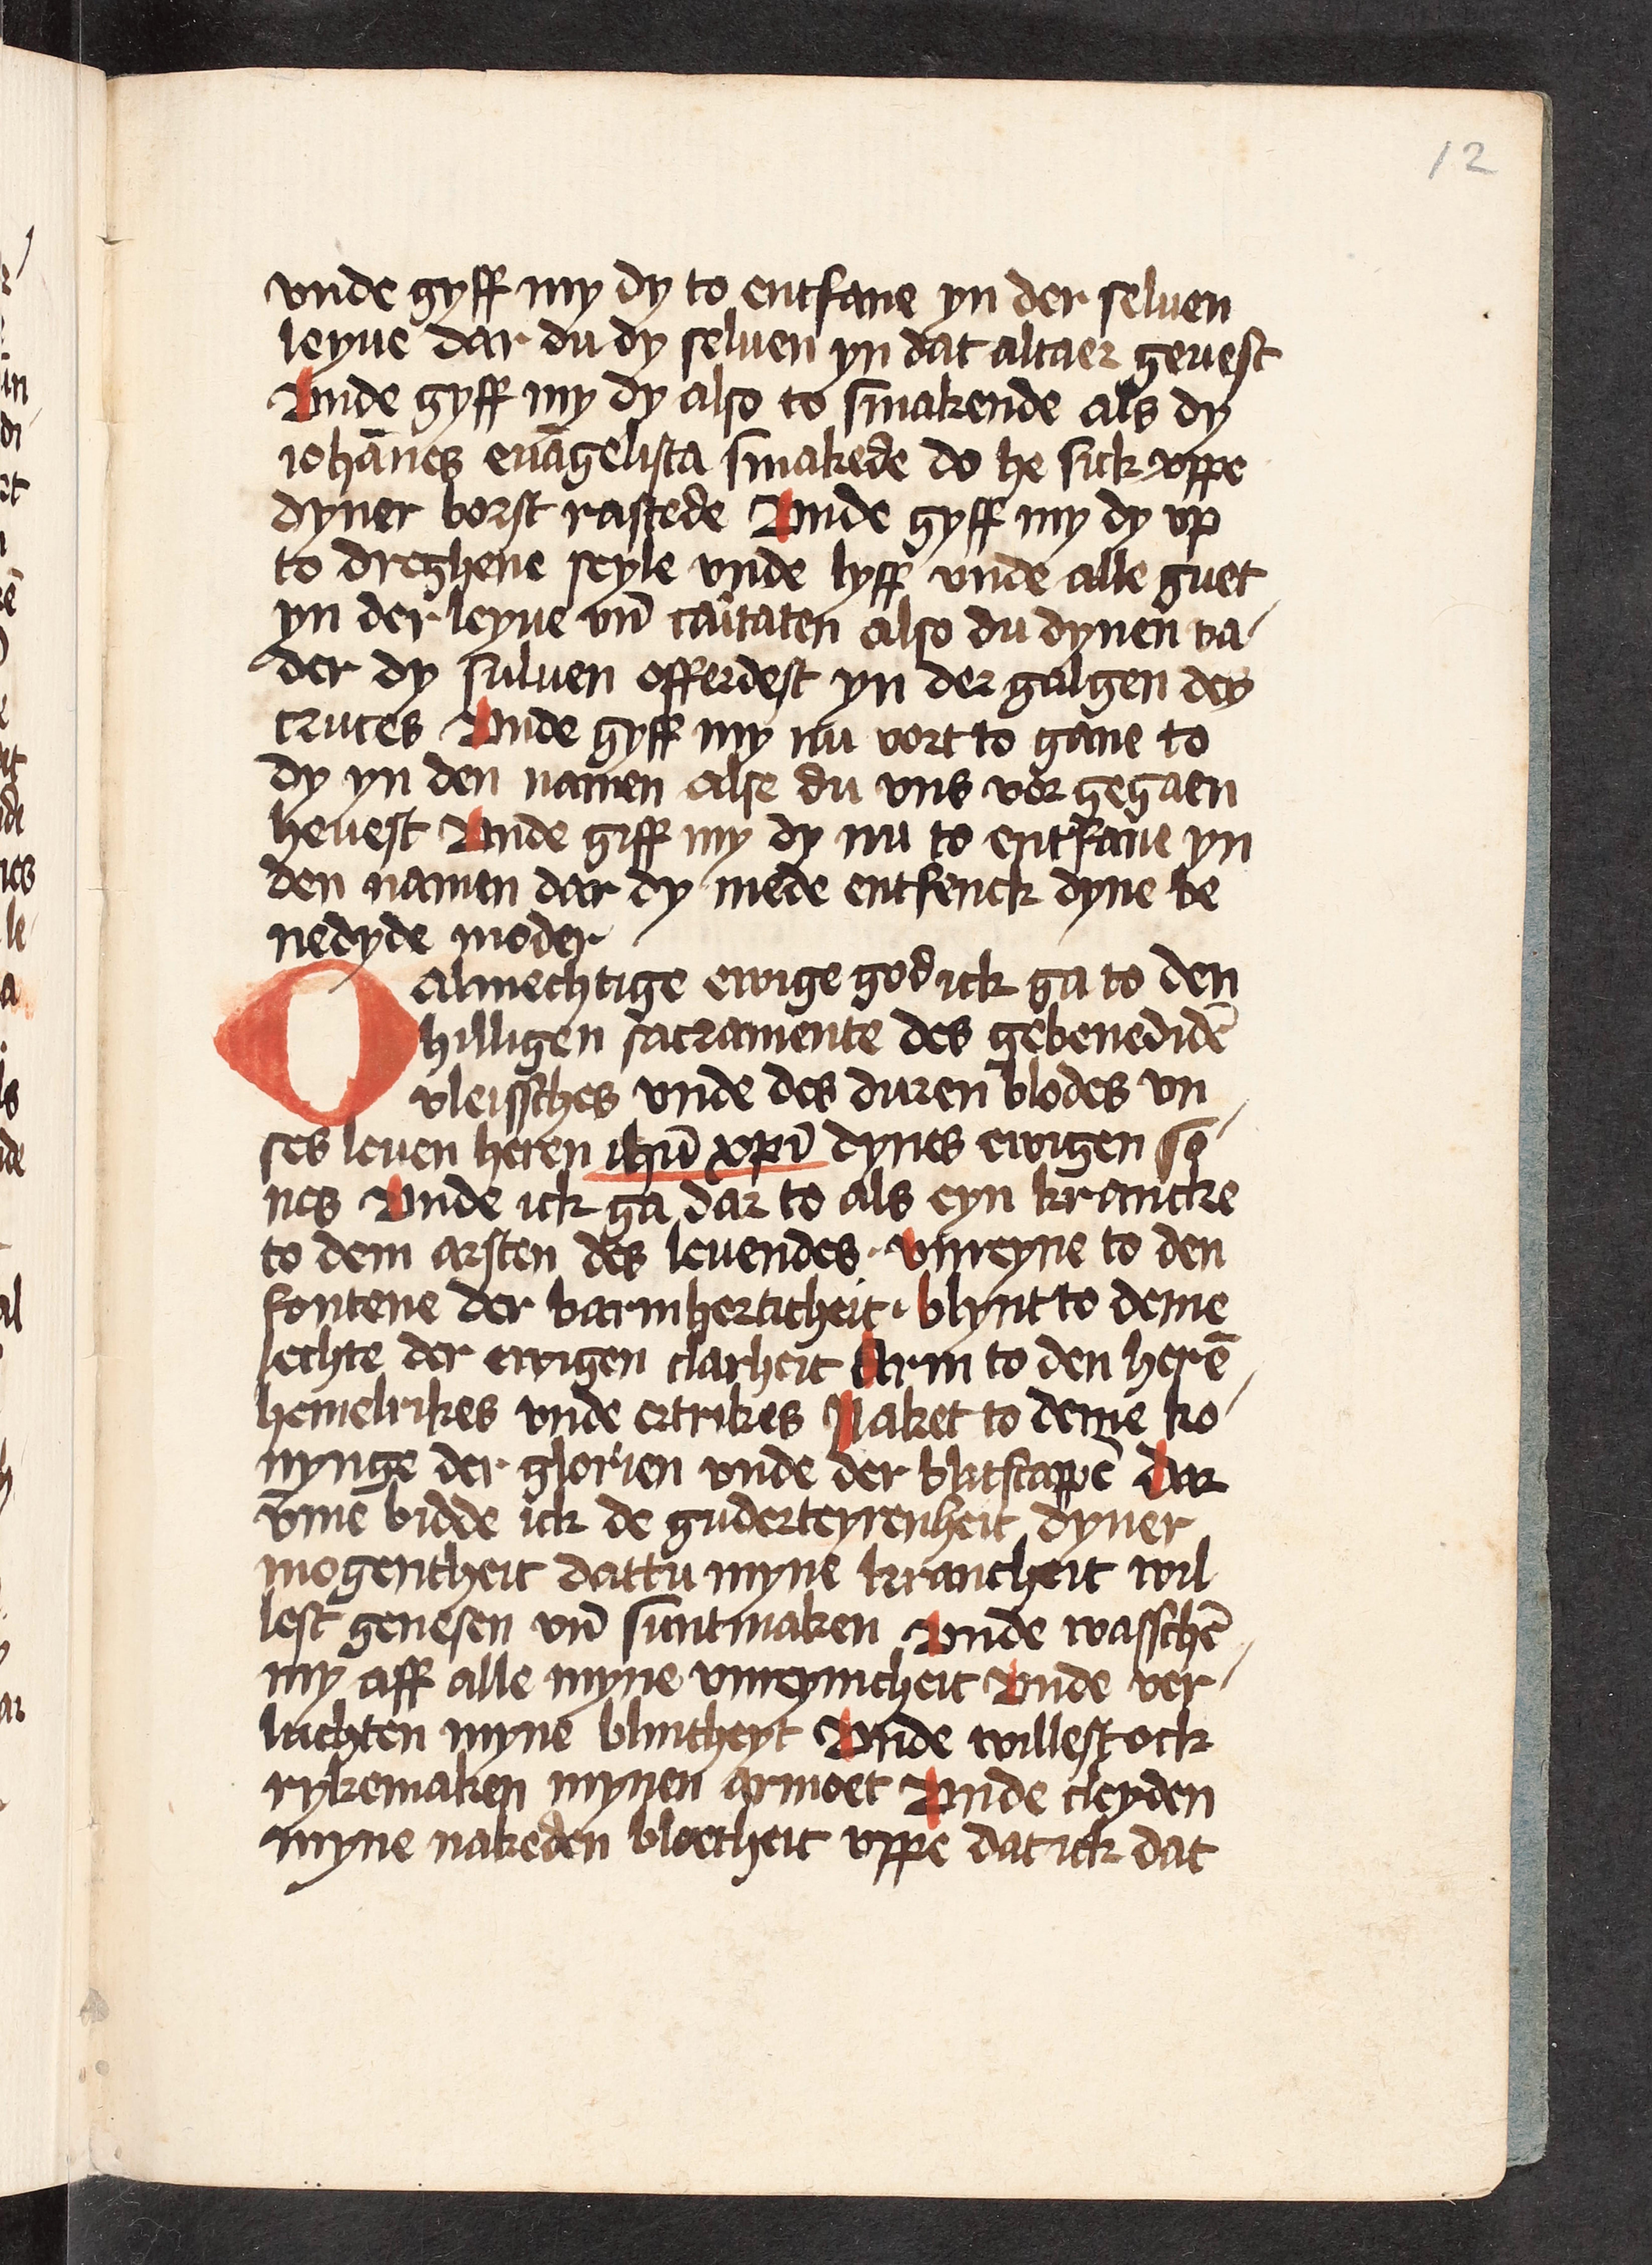 12
vnde gyff my dy to entfane yn der seluen
leyue dar du dy seluen yn dat altaer geuest
Vnde gyff my dy also to smakende als dy
iohānes euāgelista smakede do he sick vppe
dyner borst rastede Vnde gyff my dy vp
to dreghene seyle vnde lyff vnde alle guet
yn der leyue vn̄ caritaten also du dynen va-
der dy suluen offerdest yn der galgen des
cruces Vnde gyff my nu vort to gane to
dy yn den namen alse du vns vor gegaen
heuest Vnde giff my dy nu to entfane yn
den namen dar dy mede entfenck dyne be
nedyde moder
O almechtige ewige god ick ga to den
hilligen sacramente des gebenedidē
vleissches vnde des duren blodes vn
ses leuen heren ihū xpi̅ dynes ewigen so-
nes Vnde ick ga dar to als eyn krancke
to dem arsten des leuendes · vnreyne to den
fontene der barmherticheit · blynt to deme
lechte der ewigen clarheit Arm to den herē
hemelrikes vnde ertrikes Naket to deme ko-
nynge der glorien vnde der blitscappē Dar
v̄me bidde ick de guderteyrenheit dyner
mogentheit dattu myne krancheit wil
lest genesen vn̄ suntmaken Vnde wasschē
my aff alle myne vnreynicheit Vnde ver-
luchten myne blintheyt Vnde willest ock
rykemaken mynen armoet Vnde cleyden
myne nakeden bloetheit vppe dat ick dat